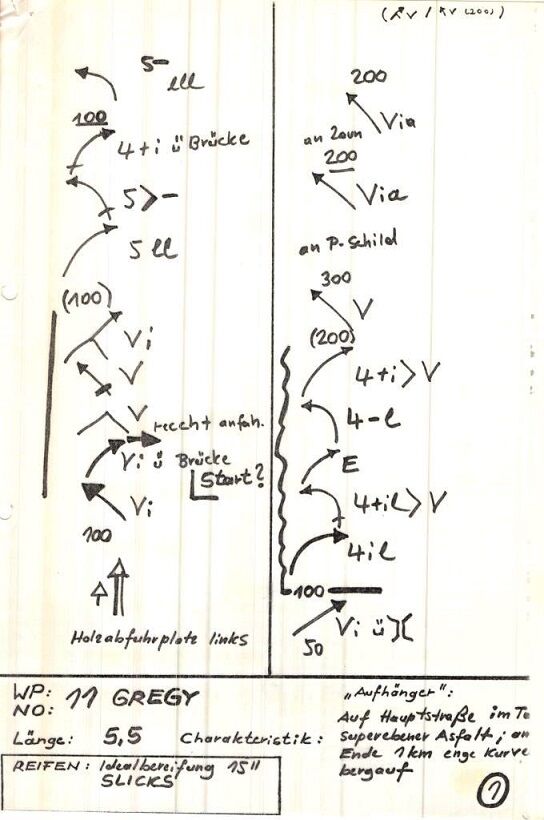 (↗v / ↖v (200))
5- lll
100
4+i ü Brücke
5>-
5 ll
(100)
Vi
V
V
recht anfah.
Vi ü Brücke
Start?
Vi
100
Holzabfuhrplatz links
200
Via
an Zaun
200
Via
an P-Schild
300
V
(200)
4+i>V
4-l
E
4+il>V
4il
100
Vi ü)(
50
WP: 11 GREGY
NO:
Länge: 5,5 Charakteristik:
REIFEN: Idealbereifung 15"
SLICKS
„Aufhänger":
Auf Hauptstraße im
superebener Asfalt; an
Ende 1km enge Kurve
bergauf
1